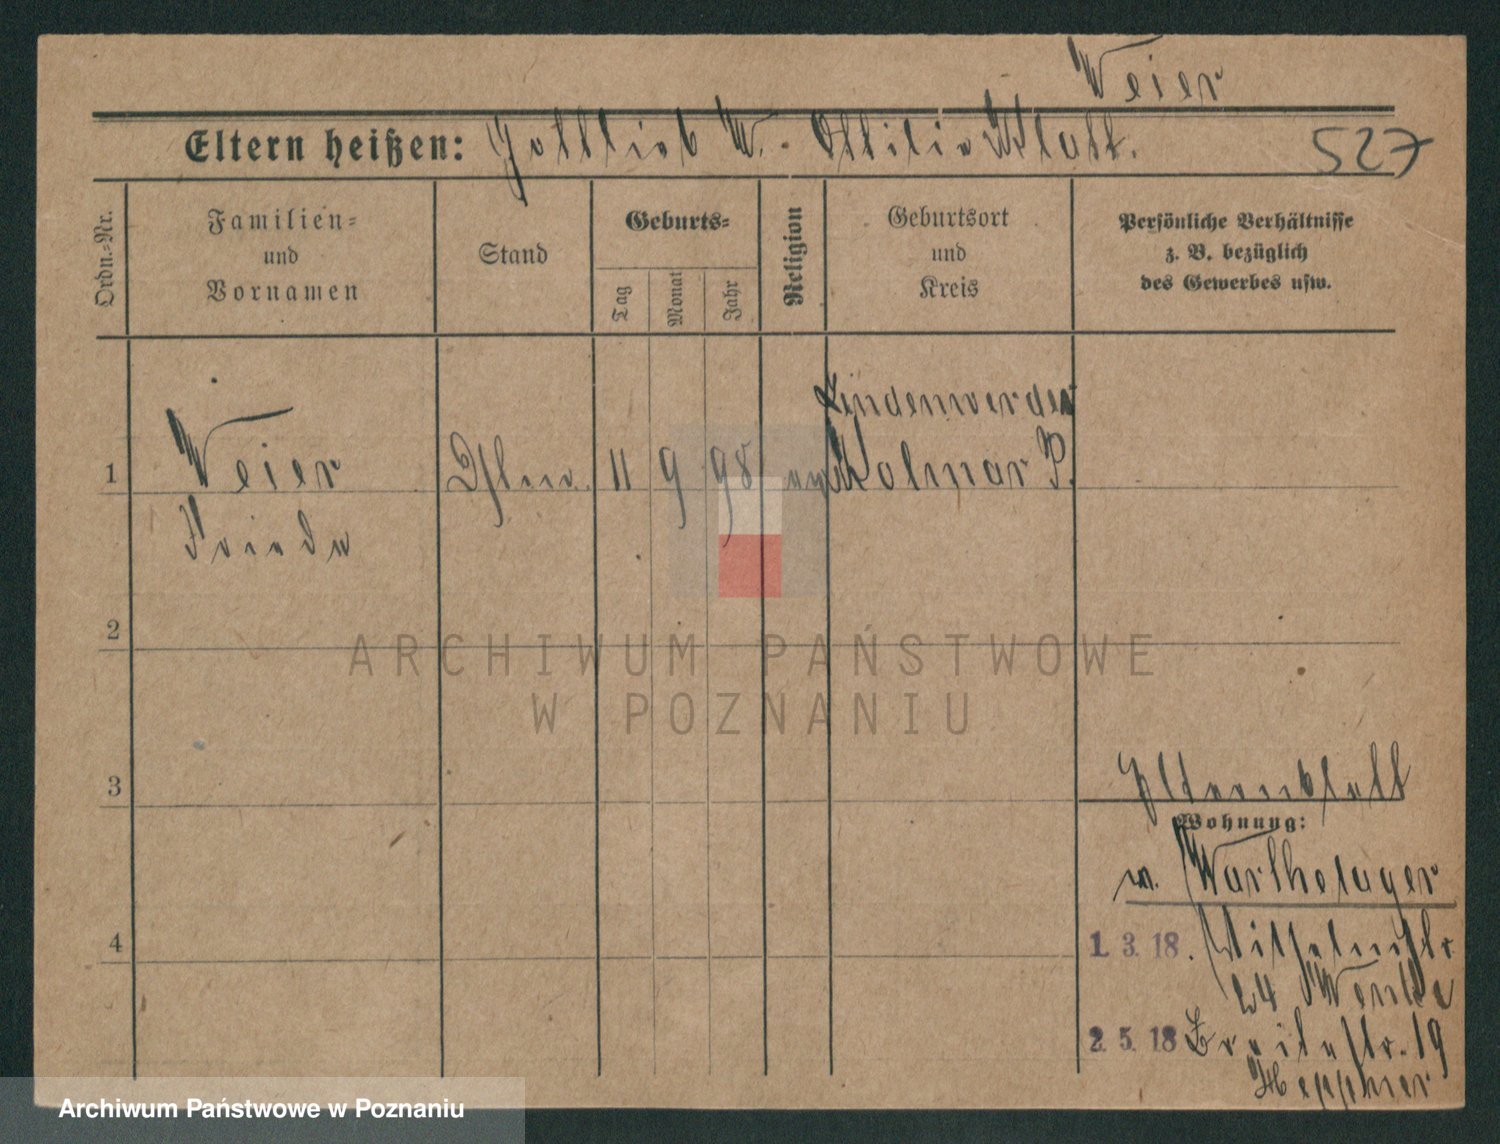 Weier
Eltern heißen: Gottlieb W. - Ottilie Klatt.
527
Ordn.-Nr.
Familien-
und
Vornamen
Stand
Geburts-
Tag
Monat
Jahr
Religion
Geburtsort
und
Kreis
Persönliche Verhältnisse
z. B. bezüglich
des Gewerbes usw.
Lindenwerder
1 Weier 11 9 98 Kolmar P.
Frieda
2
ARCHIWUM PAŃSTWOWE
W POZNANIU
3
Wohnung:
w. Warthelager
4
1. 3. 18. Wilhelmstr
24
2. 5. 18 Breitestr. 19
Heppner
Archiwum Państwowe w Poznaniu